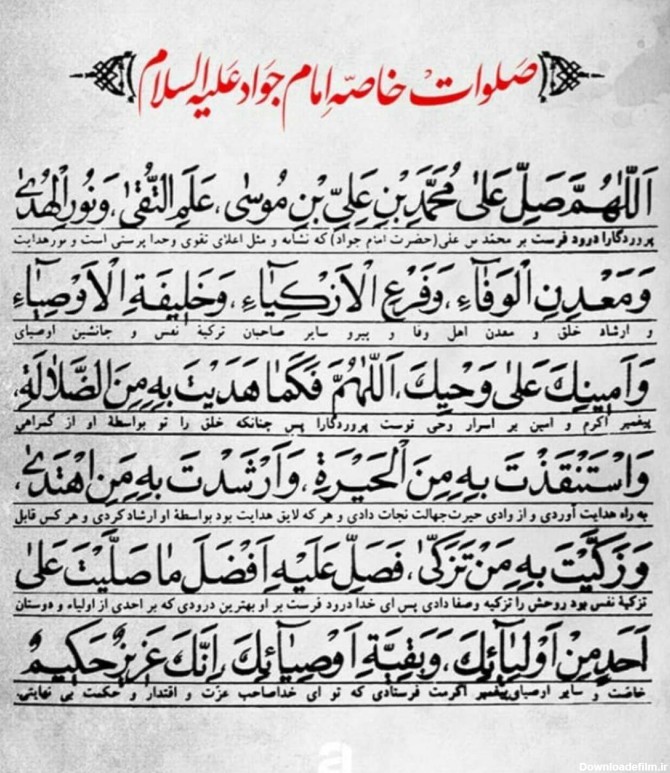 صلوات خاصه امام جواد علیه السلام
اَللّٰهُمَّ صَلِّ عَلىٰ مُحَمَّدِ بْنِ عَلِيِّ بْنِ مُوسىٰ، عَلَمِ التُّقىٰ، وَنُورِ الْهُدىٰ
پروردگارا درود فرست بر محمد بن علی (حضرت امام جواد) که نشانه و مثل اعلای تقوی وخدا پرستی است و نور هدایت
وَمَعْدِنِ الْوَفآءِ، وَفَرْعِ الْاَزْكِيآءِ، وَخَليفَةِ الْاَوْصِيآءِ
و ارشاد خلق و معدن اهل وفا و پیرو سایر صاحبان تزکیهٔ نفس و جانشین اوصیای
وَاَمينِكَ عَلىٰ وَحْيِكَ، اَللّٰهُمَّ فَكَما هَدَيْتَ بِهِ مِنَ الضَّلالَةِ،
پیغمبر اکرم و امین بر اسرار وحی توست پروردگارا پس چنانکه خلق را تو بواسطهٔ او از گمراهی
وَاسْتَنْقَذْتَ بِهِ مِنَ الْحَيْرَةِ، وَاَرْشَدْتَ بِهِ مَنِ اهْتَدىٰ،
به راه هدایت آوردی و از وادی حیرت جهالت نجات دادی و هر که لایق هدایت بود بواسطهٔ او ارشاد کردی و هر کس قابل
وَزَكَّيْتَ بِهِ مَنْ تَزَكّىٰ، فَصَلِّ عَلَيْهِ اَفْضَلَ ما صَلَّيْتَ عَلىٰ
تزکیهٔ نفس بود روحش را تزکیه وصفا دادی پس ای خدا درود فرست بر او بهترین درودی که بر احدی از اولیاء و دوستان
اَحَدٍ مِنْ اَوْلِيآئِكَ، وَبَقِيَّةِ اَوْصِيآئِكَ، اِنَّكَ عَزيزٌ حَكيمٌ
خاصت و سایر اوصیای پیغمبر اکرمت فرستادی که تو ای خدا صاحب عزت و اقتدار و حکمت بی نهایتی.
Downloadefilm.ir